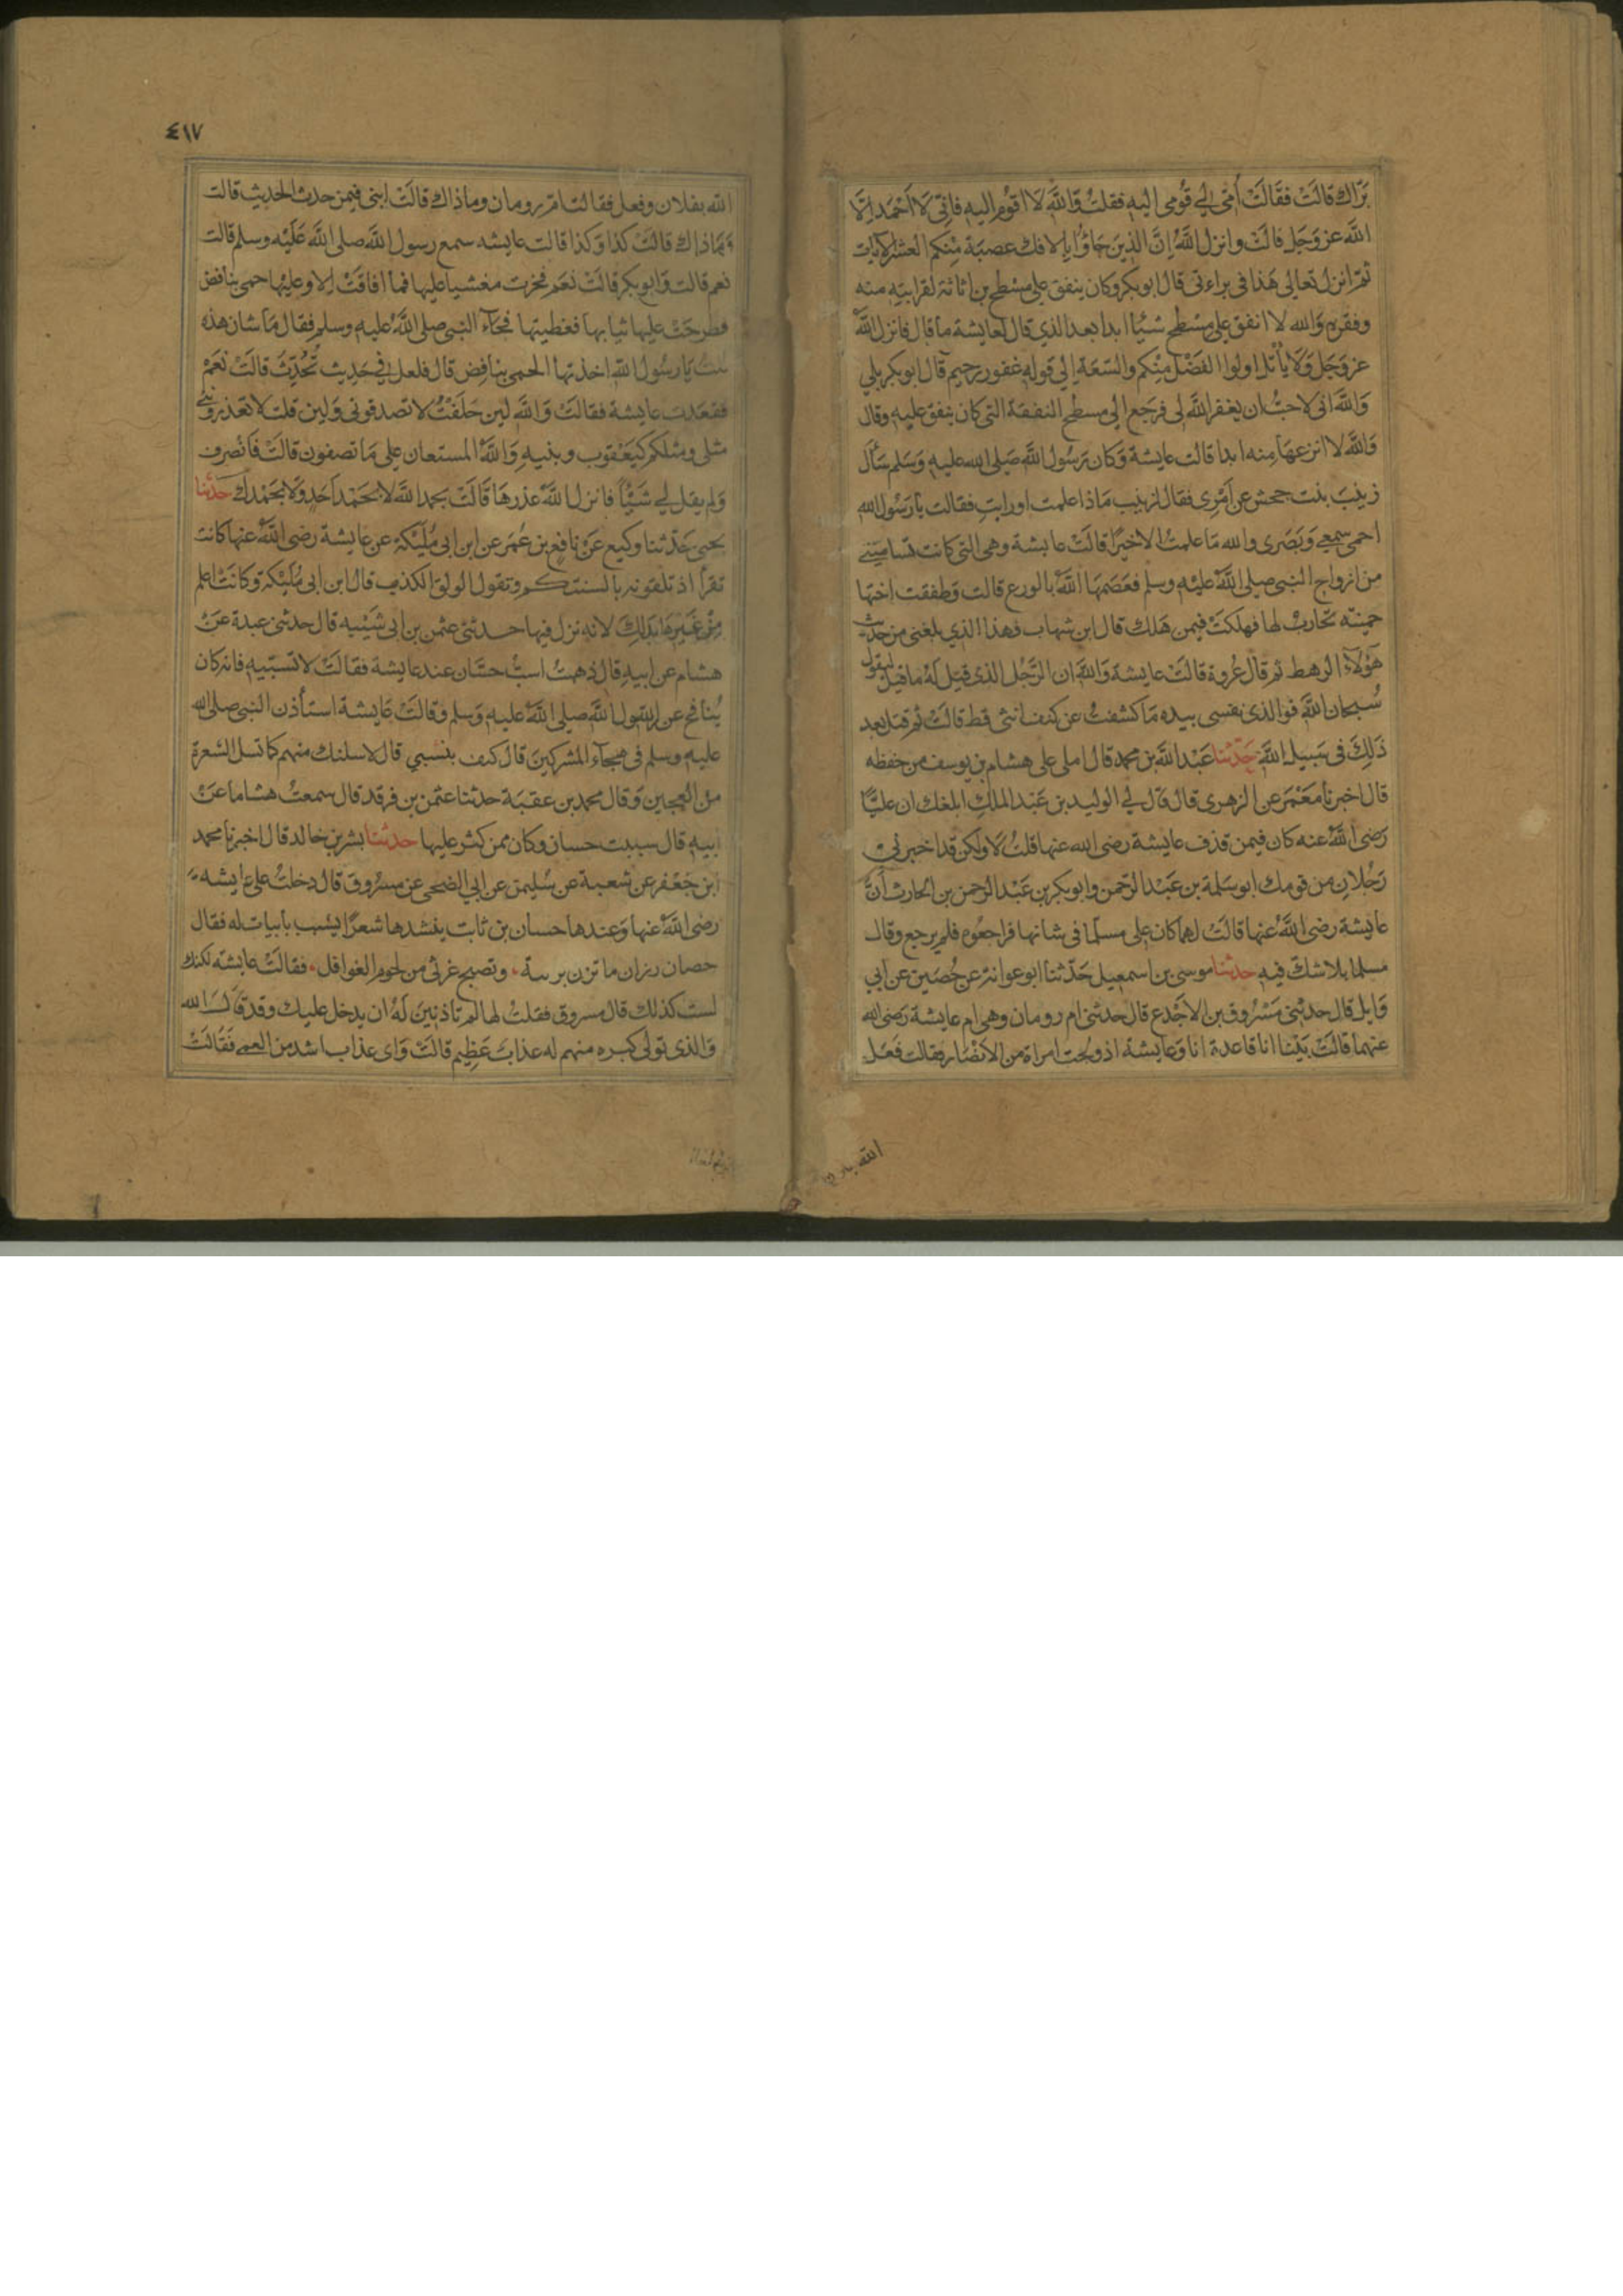 برّاك قالت فقالت أمّي لي قومي اليه فقلت والله لا اقوم اليه فاني لا احمد الّا
الله عز وجل قالت وانزل الله إنّ الذين جاؤا بالافك عصبة منكم العشر الآيات
ثم انزل تعالى هذا في براءتي قال ابو بكر وكان ينفق على مسطح بن اثاثة لقرابته منه
وفقره والله لا انفق على مسطح شيئا ابدا بعد الذي قال لعايشة ما قال فانزل الله
عز وجل ولا يأتل اولوا الفضل منكم والسّعة إلى قوله غفور رحيم قال ابو بكر بلى
والله اني لاحبّ ان يغفر الله لي فرجع الي مسطح النفقة التي كان ينفق عليه وقال
والله لا انزعها منه ابدا قالت عايشة وكان رسول الله صلى الله عليه وسلم سأل
زينب بنت جحش عن أمري فقال لزينب ماذا علمت او رايت فقالت يا رسول الله
احمي سمعي وبصري والله ما علمت الا خيرًا قالت عايشة وهي التي كانت تساميني
من ازواج النبي صلى الله عليه وسلم فعصمها الله بالورع قالت وطفقت اختها
حمنة تحارب لها فهلكت فيمن هلك قال ابن شهاب فهذا الذي بلغني من حديث
هؤلاء الرهط ثم قال عروة قالت عايشة والله ان الرّجل الذي قيل له ما قيل ليقول
سبحان الله فوالذي نفسي بيده ما كشفت عن كنف انثى قط قالت ثم قتل بعد
ذلك في سبيل الله حدّثنا عبد الله بن محمد قال املى على هشام بن يوسف من حفظه
قال اخبرنا معمر عن الزهري قال قال لي الوليد بن عبد الملك ابلغك ان عليًّا
رضي الله عنه كان فيمن قذف عايشة رضي الله عنها قلت لا ولكن قد اخبرني
رجلان من قومك ابو سلمة بن عبد الرّحمن وابو بكر بن عبد الرّحمن بن الحارث أنّ
عايشة رضي الله عنها قالت لهما كان على مسلّما في شانها فراجعوه فلم يرجع وقال
مسلما بلا شك فيه حدثنا موسى بن اسمعيل حدّثنا ابو عوانة عن حُصَين عن ابي
وايل قال حدثني مسروق بن الاجدع قال حدثتني ام رومان وهي ام عايشة رضي الله
عنهما قالت بينا انا قاعدة انا وعايشة اذ ولجت امراة من الانصار فقالت فعل
الله بفلان
٤١٧
الله بفلان وفعل فقالت ام رومان وما ذاك قالت ابني فيمن حدث الحديث قالت
وما ذاك قالت كذا وكذا قالت عايشه سمع رسول الله صلى الله عليه وسلم قالت
نعم قالت وابو بكر قالت نعم فخرت مغشيا عليها فما افاقت إلا وعليها حمى بنافض
فطرحت عليها ثيابها فغطيتها فجاء النبي صلى الله عليه وسلم فقال ما شان هذه
قلت يا رسول الله اخذتها الحمى بنافض قال فلعل في حديث تُحُدِّث قالت نعم
فقعدت عايشة فقالت والله لين حلفت لا تصدقوني ولين قلت لا تعذروني
مثلي ومثلكم كيعقوب وبنيه والله المستعان على ما تصفون قالت فانصرف
ولم يقل لي شيئًا فانزل الله عذرها قالت بحمد الله لا بحمد احد ولا بحمدك حدثنا
يحيى حدّثنا وكيع عن نافع بن عُمر عن ابن ابي مُليكة عن عايشة رضي الله عنها كانت
تقرأ اذ تلقونه بالسنتكم وتقول الولق الكذب قال ابن ابي مُليكة وكانت اعلم
من غيرها بذلك لانه نزل فيها حدثني عثمن بن ابي شيبه قال حدثني عبدة عن
هشام عن ابيه قال ذهبتُ اسبّ حسّان عند عايشة فقالت لا تسبّه فانه كان
يُنافح عن رسول الله صلى الله عليه وسلم وقالت عايشة استأذن النبي صلى الله
عليه وسلم في هجاء المشركين قال كيف بنسبي قال لاسلنك منهم كما تسل الشعرة
من العجين وقال محمد بن عقبة حدثنا عثمن بن فرقد قال سمعت هشاما عن
ابيه قال سببت حسان وكان ممن كثر عليها حدثنا بشر بن خالد قال اخبرنا محمد
ابن جعفر عن شعبة عن سُليمن عن ابي الضحى عن مسروق قال دخلت على عايشه
رضي الله عنها وعندها حسان بن ثابت ينشدها شعرًا يشبب بابيات له فقال
حصان رزان ما تزن بريبة . وتصبح غرثى من لحوم الغوافل . فقالت عايشه لكنك
لست كذلك قال مسروق فقلت لها لم تاذنين له ان يدخل عليك وقد قال الله
والذي تولى كبره منهم له عذاب عظيم قالت واى عذاب اشد من العمى فقالت